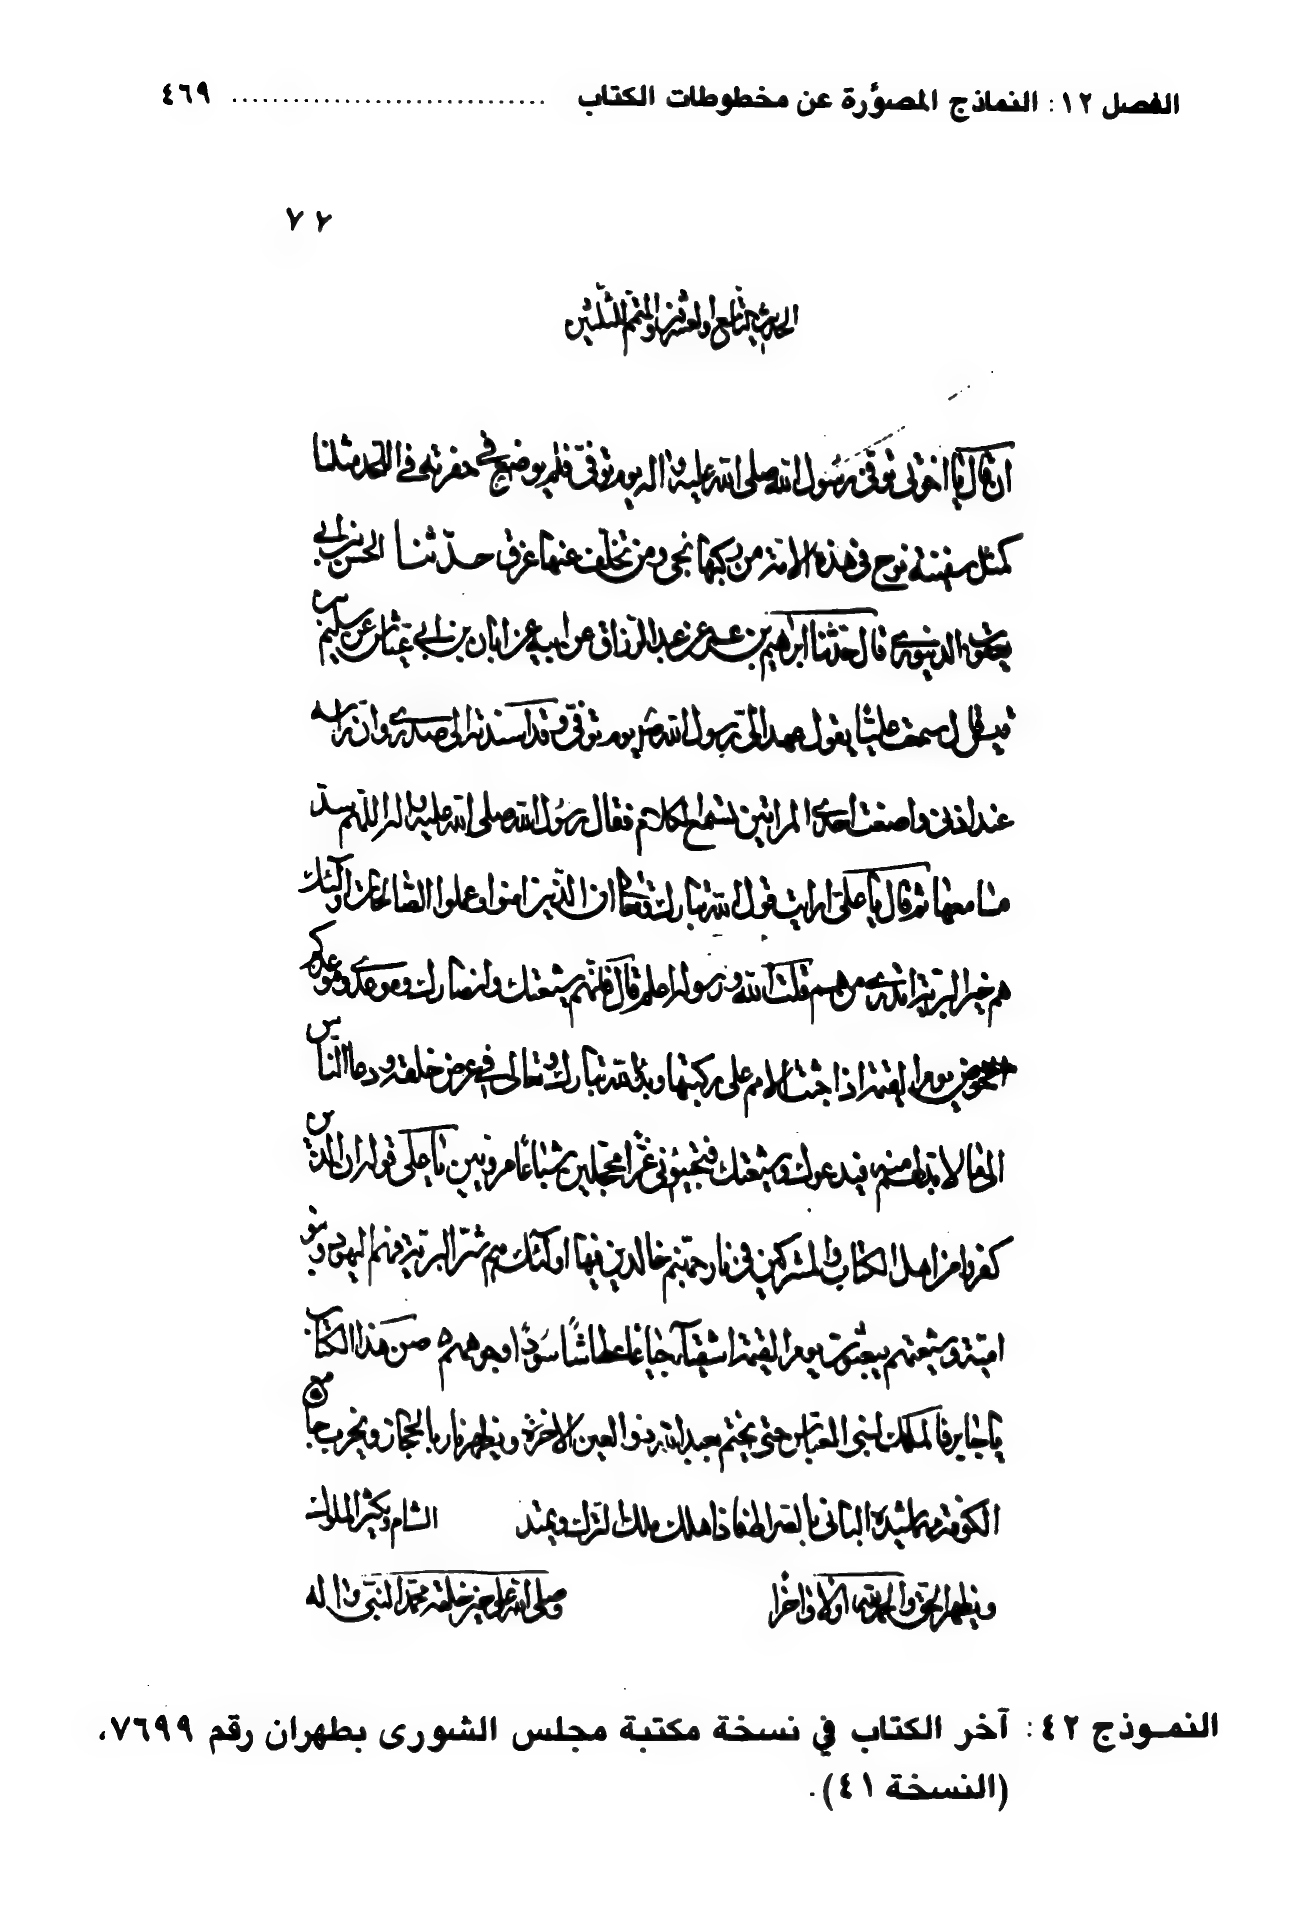 الفصل ١٢: النماذج المصوَّرة عن مخطوطات الكتاب .............................. ٤٦٩
٧٢
الحديث التاسع والعشرون والمتمم الثلثين
ان قال يا اخوتى توفى رسول الله صلى الله عليه واله يوم توفى فلم يوضع فى حفرته فى
كمثل سفينة نوح فى هذه الامة من ركبها نجى ومن تخلف عنها غرق حدثنا الحسن بن ابى
يعقوب الدينورى قال حدثنا ابرهيم بن عمر عن عبد الرزاق عن ابيه عن ابان بن ابى عياش عن سليم بن
قيس قال سمعت عليا يقول عهد الى رسول الله ص يوم توفى وقد اسندته الى صدرى وان راسه
عند اذنى واصغت احدى المراتين لتسمع الكلام فقال رسول الله صلى الله عليه واله اللهم سد
مسامعها ثم قال يا على ارايت قول الله تبارك وتعالى ان الذين امنوا وعملوا الصالحات اولئك
هم خير البرية اتدرى من هم قلت الله ورسوله اعلم قال فانهم شيعتك وانصارك وموعدى وموعدكم
الحوض يوم القيمة اذا جثت الامم على ركبها وبدا لله تبارك وتعالى فى عرض خلقه ودعا الناس
الى ما لا بد لهم منه فيدعوك وشيعتك فتجيئونى غرا محجلين شباعا مرويين يا على قوله ان الذين
كفروا من اهل الكتاب والمشركين فى نار جهنم خالدين فيها اولئك هم شر البرية فهم اليهود وبنو
امية وشيعتهم يبعثون يوم القيمة اشقياء جياعا عطاشا سودا وجوههم ٥ من هذا الكتاب
يا جابر فالملك لبنى العباس حتى يختم بعبد الله ذو العين الاخرة ويظهر نار بالحجاز ويخرب جامع
الكوفة فاذا هلك ملك الترك الشام ويكثر الملوك
ويظهر الحق والحمد لله اولا واخرا وصلى الله على خير خلقه محمد النبى واله
النمـوذج ٤٢: آخر الكتاب في نسخة مكتبة مجلس الشورى بطهران رقم ٧٦٩٩،
(النسخة ٤١).